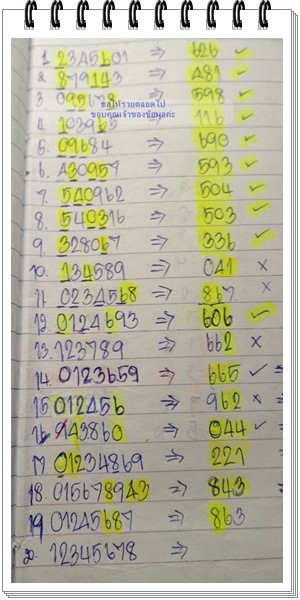 1. 2345601 ⇒ 626 ✓
2. 879143 ⇒ 481 ✓
3. 095678 ⇒ 598 ✓
ขอให้รวยตลอดไป
ขอบคุณเจ้าของข้อมูลค่ะ
4. 103965 ⇒ 116 ✓
5. 09684 ⇒ 690 ✓
6. 430957 ⇒ 593 ✓
7. 540962 ⇒ 504 ✓
8. 540316 ⇒ 503 ✓
9. 328067 ⇒ 336 ✓
10. 134589 ⇒ 041 ×
11. 0234568 ⇒ 867 ×
12. 0124693 ⇒ 606 ✓
13. 123789 ⇒ 662 ×
14. 0123659 ⇒ 665 ✓
15. 012456 ⇒ 962 ×
16. 143860 ⇒ 044 ✓
17. 01234869 ⇒ 221
18. 015678943 ⇒ 843
19. 01245687 ⇒ 863
20. 12345678 ⇒